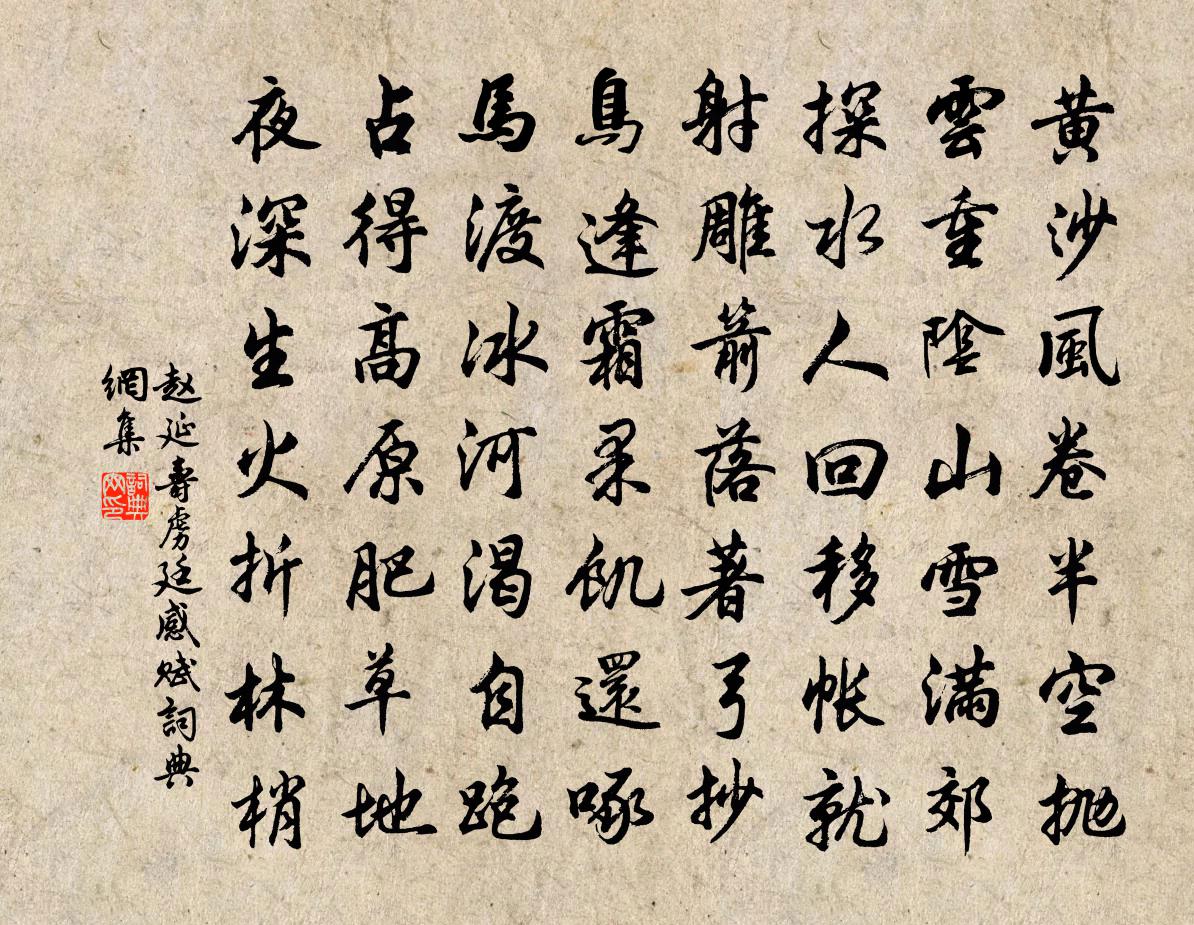 黃沙風卷半空拋
雲重陰山雪滿郊
探水人回移帳就
射雕箭落著弓抄
鳥逢霜果飢還啄
馬渡冰河渴自跑
占得高原肥草地
夜深生火折林梢
趙延壽虜廷感賦詞典
網集
詞典網印